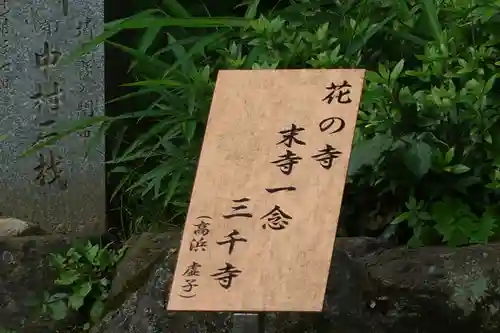 花の寺
末寺一念
三千寺
（高浜 虚子）
中村三